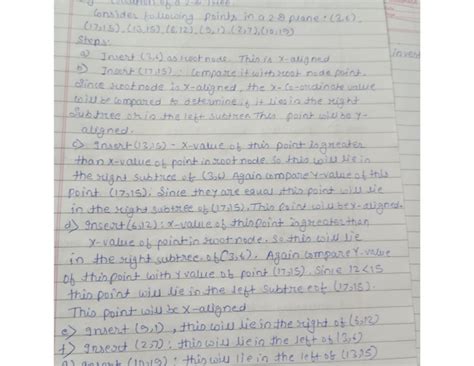 Creation of a 2-D Tree.
Consider following points in a 2-D plane: (3,6),
(17,15), (13,15), (6,12), (9,1), (2,7), (10,19)
Steps-
a) Insert (3,6) as root node. This is X-aligned
b) Insert (17,15): Compare it with root node point.
Since root node is X-aligned, the X-Co-ordinate value
will be compared to determine if it lies in the right
Subtree or in the left subtree. This point will be Y-
aligned.
c) Insert (13,15) - X-value of this point is greater
than X-value of point in root node. So this will lie in
the right subtree of (3,6) Again compare Y-value of this
point (17,15). Since they are equal this point will lie
in the right subtree of (17,15). This point will be X-aligned.
d) Insert (6,12): X-value of this point is greater than
X-value of point in root node. So this will lie
in the right subtree of (3,6). Again compare Y-value
of this point with Y value of point (17,15). Since 12<15
this point will lie in the left Subtree of (17,15).
This point will be X-aligned
e) Insert (9,1), this will lie in the right of (6,12)
f) Insert (2,7): this will lie in the left of (3,6)
g) Insert (10,19): this will lie in the left of (13,15)
invert